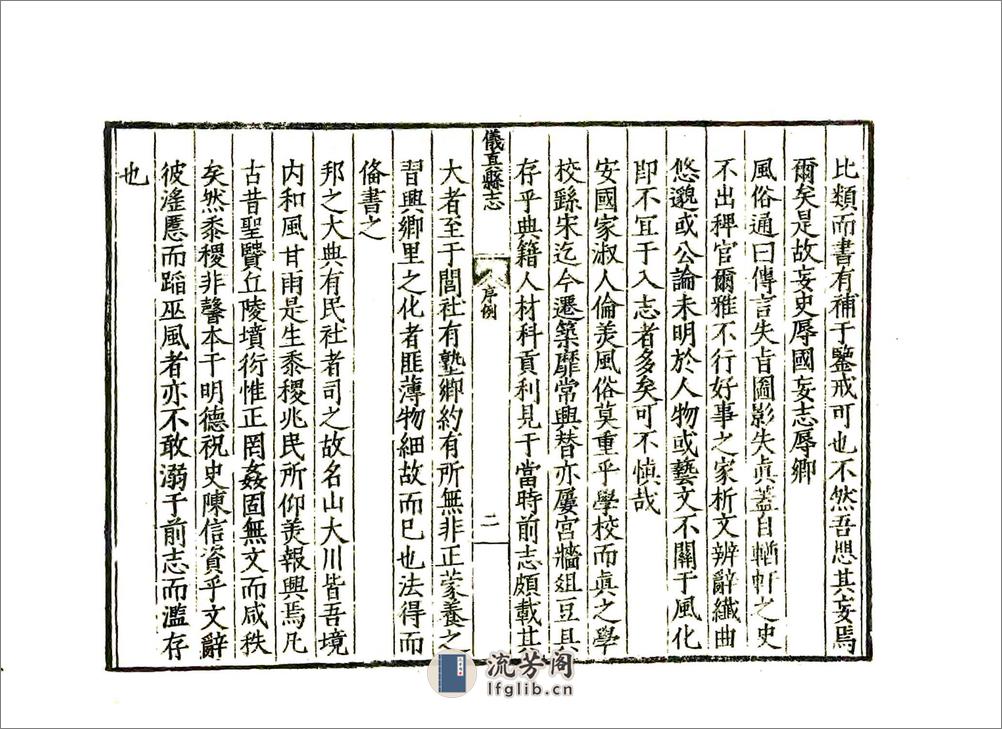 比類而書有補于鑒戒可也不然吾愳其妄焉
爾矣是故妄史辱國妄志辱鄉
風俗通曰傳言失㫖圖影失眞蓋自輶軒之史
不出稗官爾雅不行好事之家析文辨辭纖曲
悠邈或公論未明於人物或藝文不關于風化
即不宜于入志者多矣可不慎哉
安國家淑人倫美風俗莫重乎學校而眞之學
校繇宋迄今遷築靡常興替亦屢宮牆俎豆具
存乎典籍人材科貢利見于當時前志頗載其
儀真縣志
序例
二
大者至于閭社有塾鄉約有所無非正蒙養之
習興鄉里之化者匪薄物細故而已也法得而
俻書之
邦之大典有民社者司之故名山大川皆吾境
内和風甘雨是生黍稷兆民所仰美報興焉凡
古昔聖賢丘陵墳衍惟正罔姦固無文而咸秩
矣然黍稷非馨本于明德祝史陳信資乎文辭
彼淫慝而蹈巫風者亦不敢溺于前志而濫存
也
流芳阁
lfglib.cn